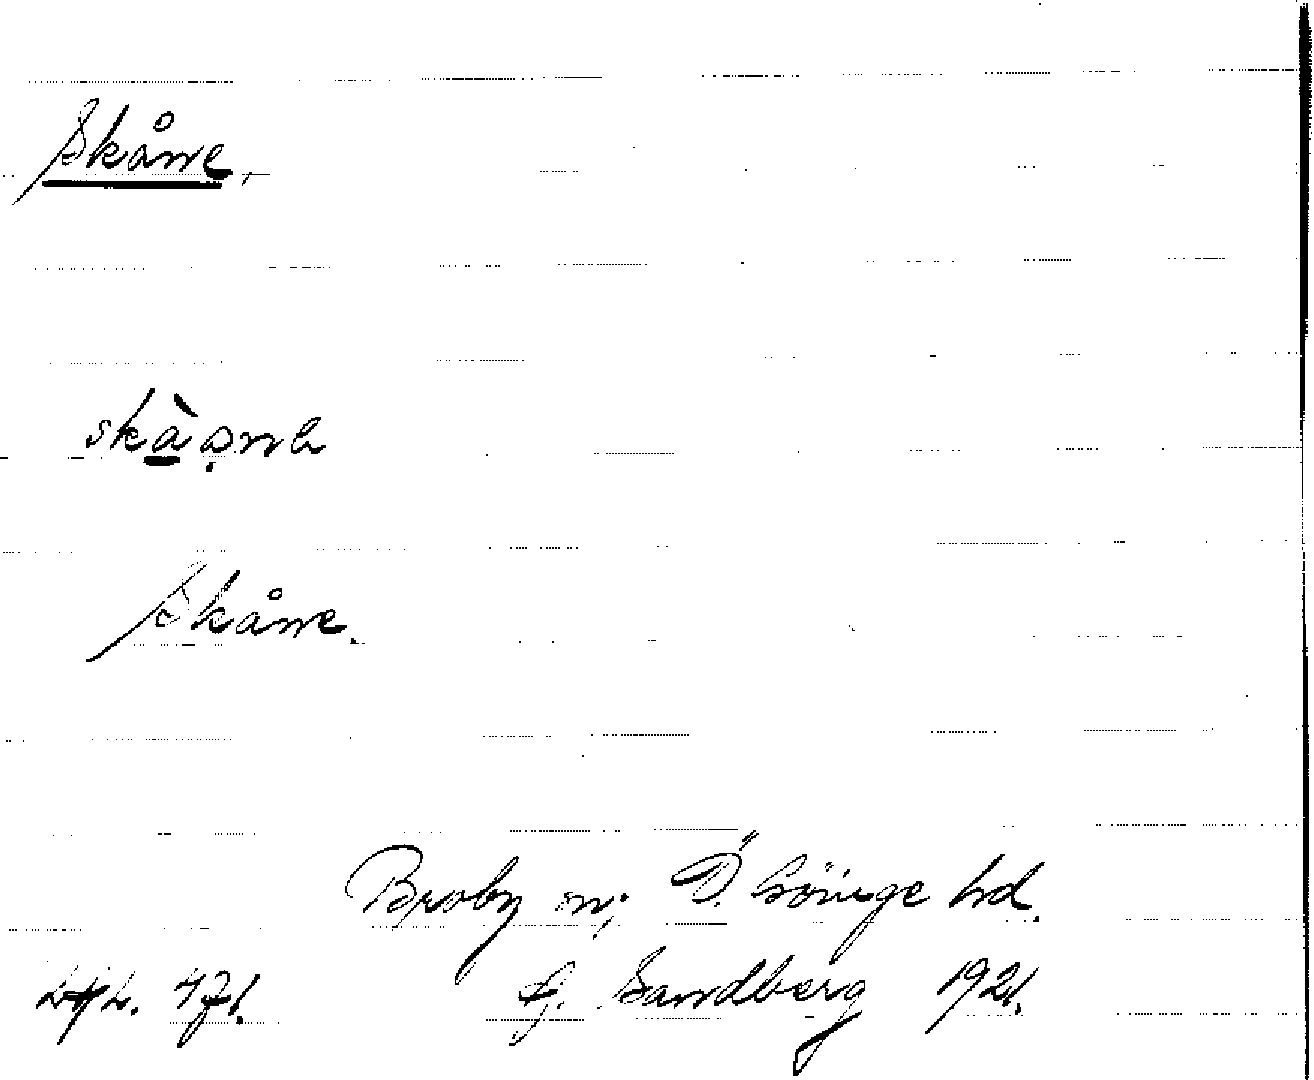 Skåne,
skàọnə
Skåne.
Broby sn; Ö. Göinge hd.
G. Sandberg 1921.